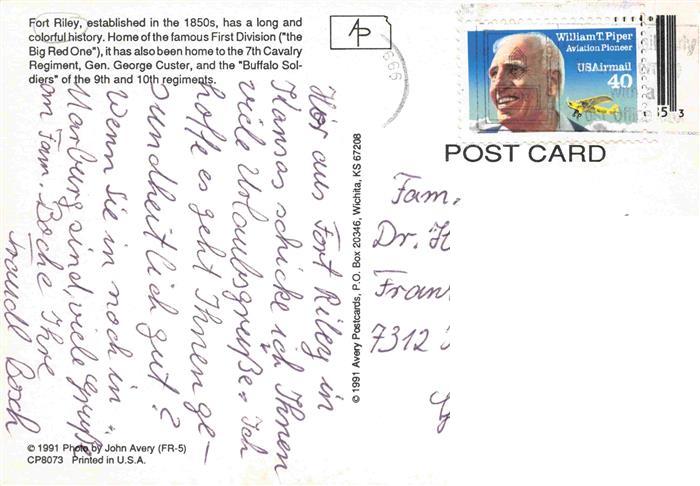 Fort Riley, established in the 1850s, has a long and
colorful history. Home of the famous First Division ("the
Big Red One"), it has also been home to the 7th Cavalry
Regiment, Gen. George Custer, and the "Buffalo Sol-
diers" of the 9th and 10th regiments.
AP
William T. Piper
Aviation Pioneer
USAirmail
40
POST CARD
Hier aus Fort Riley in
Kansas schicke ich Ihnen
viele Urlaubsgrüße. Ich
hoffe es geht Ihnen ge-
sundheitlich gut?
Wenn Sie in noch in
Marburg sind, viele Grüße
an Fam. Boche Ihre
Traudl Bosch
© 1991 Avery Postcards, P.O. Box 20346, Wichita, KS 67208
Fam.
Dr. H
Fran
7312
© 1991 Photo by John Avery (FR-5)
CP8073 Printed in U.S.A.